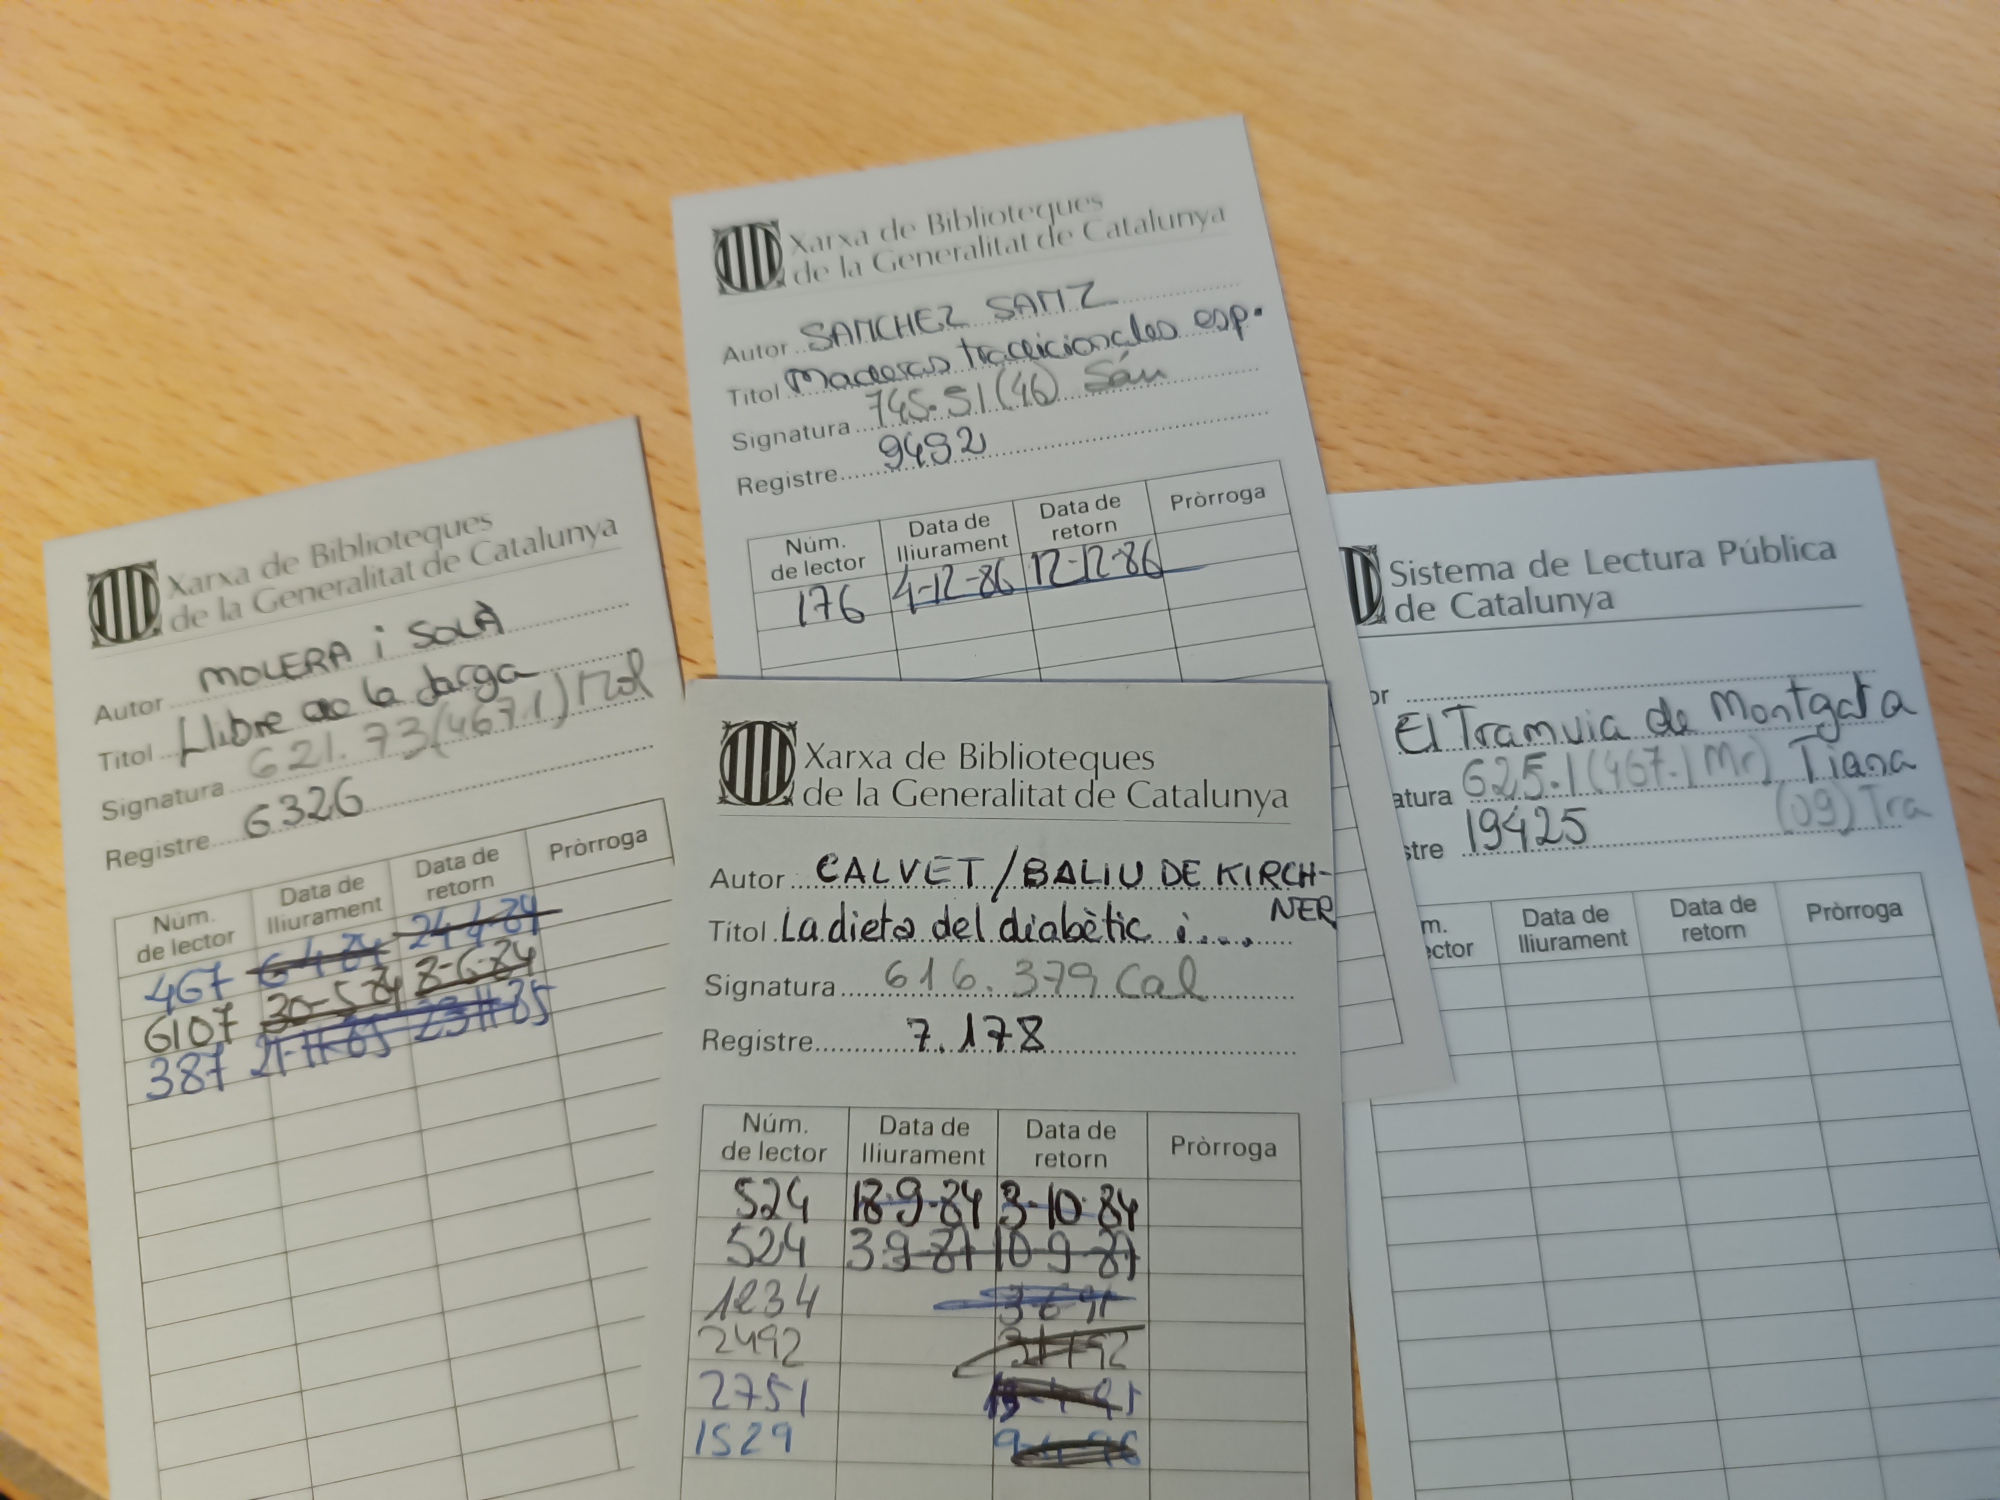 Xarxa de Biblioteques
de la Generalitat de Catalunya
Autor MOLERA i SOLÀ
Titol Llibre de la farga
Signatura 621.73(467.1) Mol
Registre 6326
Núm. de lector Data de lliurament Data de retorn Pròrroga
467 6-4-84 24-4-84
6107 30-5-84 8-6-84
387 21-11-85 23-11-85
Xarxa de Biblioteques
de la Generalitat de Catalunya
Autor SANCHEZ SANZ
Titol Maderas tradicionales esp.
Signatura 745.51(46) Sán
Registre 9492
Núm. de lector Data de lliurament Data de retorn Pròrroga
176 4-12-86 12-12-86
Xarxa de Biblioteques
de la Generalitat de Catalunya
Autor CALVET/BALIU DE KIRCH-
NER
Titol La dieta del diabètic i....
Signatura 616.379 Cal
Registre 7.178
Núm. de lector Data de lliurament Data de retorn Pròrroga
524 18-9-84 3-10-84
524 3-9-87 10-9-87
1234
2492
2751
1529
Sistema de Lectura Pública
de Catalunya
or
El Tramvia de Montgat a
Tiana
atura 625.1(467.1 Mr)
(09) Tra
stre 19425
m. ector Data de lliurament Data de retorn Pròrroga